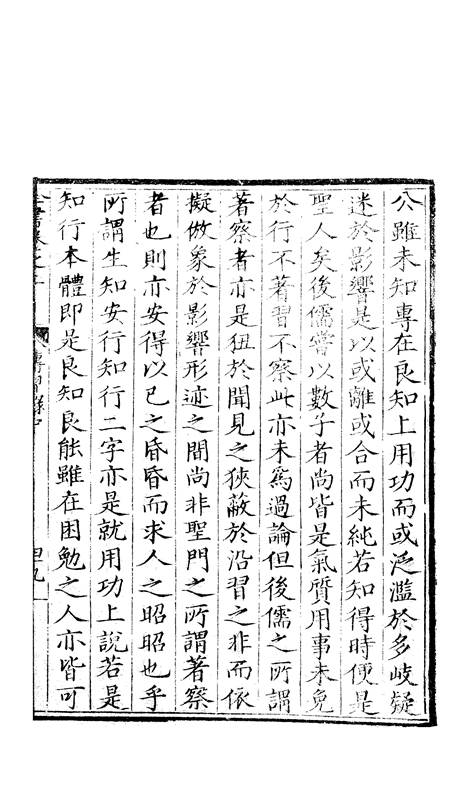 公雖未知專在良知上用功而或泛濫於多歧疑
迷於影響是以或離或合而未純若知得時便是
聖人矣後儒嘗以數子者尚皆是氣質用事未免
於行不著習不察此亦未爲過論但後儒之所謂
著察者亦是狃於聞見之狹蔽於沿習之非而依
擬倣象於影響形迹之間尚非聖門之所謂著察
者也則亦安得以已之昏昏而求人之昭昭也乎
所謂生知安行知行二字亦是就用功上說若是
知行本體即是良知良能雖在困勉之人亦皆可